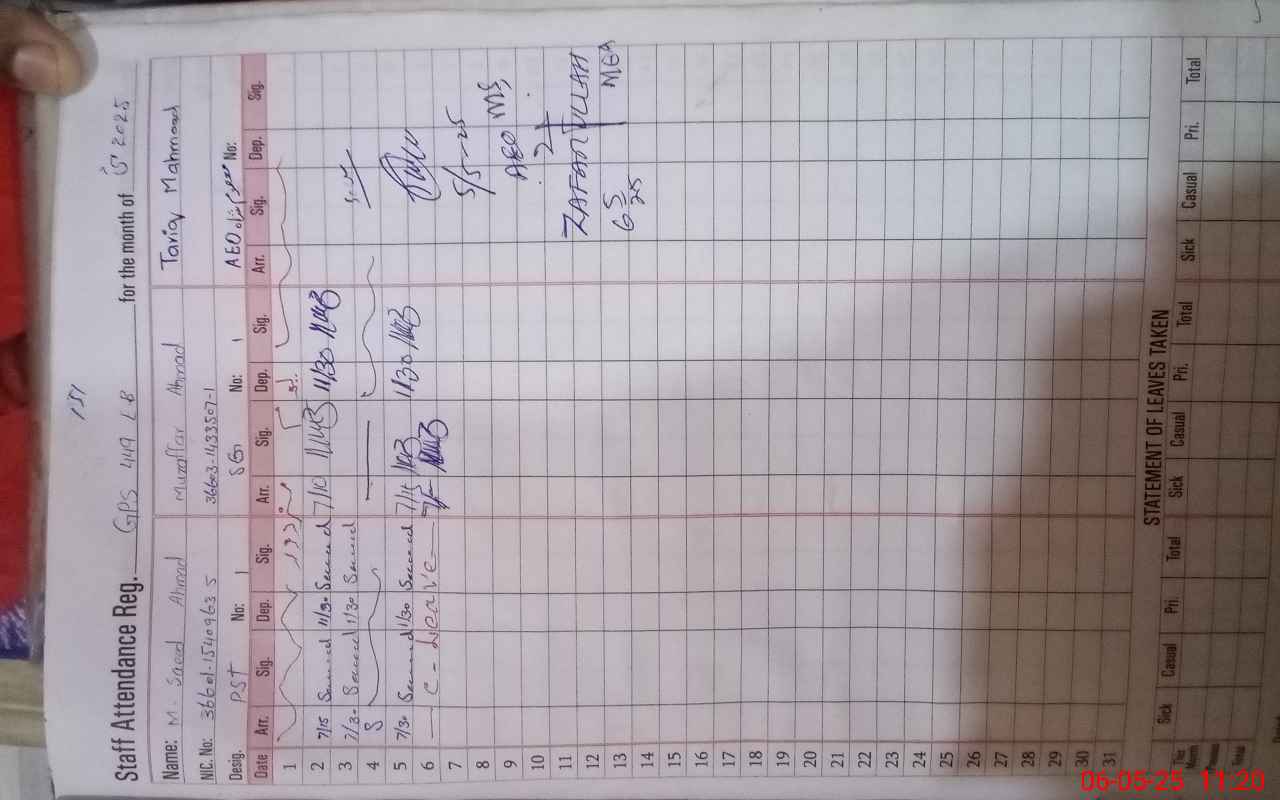 151
Staff Attendance Reg. GPS 449 LB for the month of 5 2025
Name: M. Saeed Ahmad Muzaffar Ahmad Tariq Mahmood
NIC. No: 36601-1540963 5 36603-1433507-1
Desig. PST No: 1 SG No: 1 AEO No:
Date Arr. Sig. Dep. Sig. Arr. Sig. Dep. Sig. Arr. Sig. Dep. Sig.
1
2 7/15 Saeed 11/30 Saeed 7/10 11/30
3 7/30 Saeed 11/30 Saeed
4 S
5 7/30 Saeed 1/30 Saeed 7/15 1/30
6 C - Leave
7 5/5-25
8
9 AEO MS
10 21
11
12 ZAFAR ULLAH
13 6 5/25 MEA
14
15
16
17
18
19
20
21
22
23
24
25
26
27
28
29
30
31
STATEMENT OF LEAVES TAKEN
Sick Casual Pri. Total Sick Casual Pri. Total Sick Casual Pri. Total
This Month
Previous
Total
06-05-25 11:20